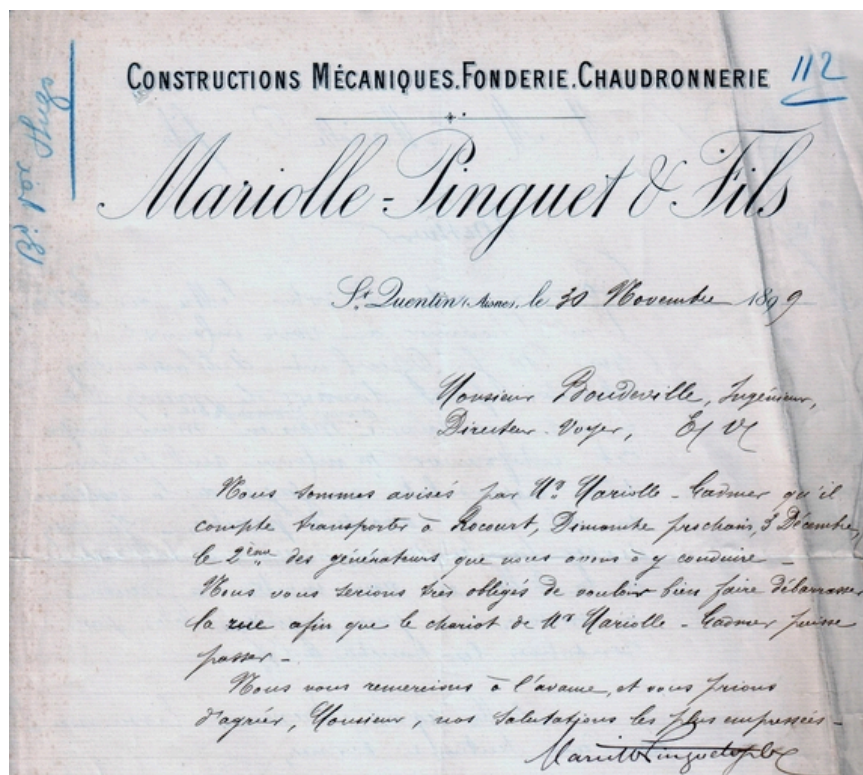 Bd Vor Hugo
112
CONSTRUCTIONS MÉCANIQUES. FONDERIE. CHAUDRONNERIE
Mariolle-Pinguet & Fils
St. Quentin (Aisne), le 30 Novembre 1899
Monsieur Boudeville, Ingénieur,
Directeur-Voyer, E/ V/
Nous sommes avisés par Mr. Mariolle-Cadmer qu'il
compte transporter à Rocourt, Dimanche prochain, 3 Décembre,
le 2ème des générateurs que nous avons à y conduire -
Nous vous serions très obligés de vouloir bien faire débarrasser
la rue afin que le chariot de Mr Mariolle-Cadmer puisse
passer -
Nous vous remercions à l'avance, et vous prions
d'agréer, Monsieur, nos salutations les plus empressées -
Mariolle Pinguet & fils